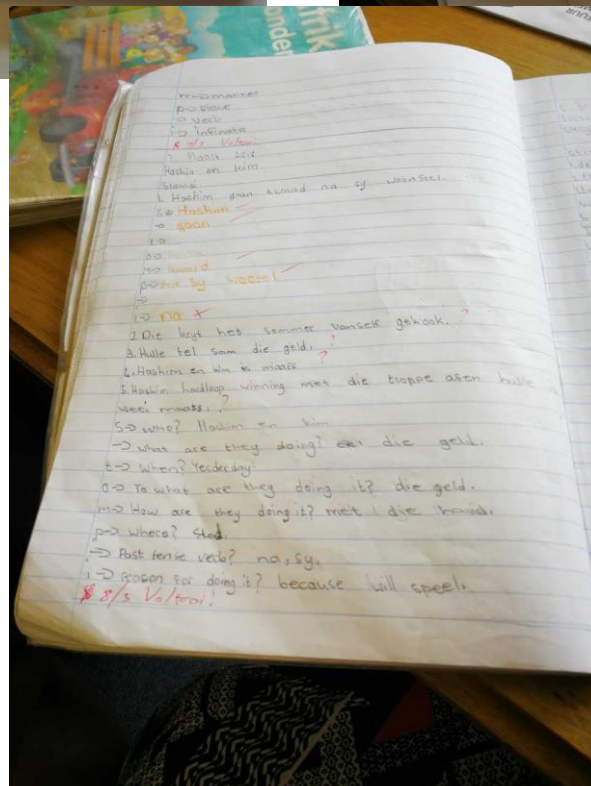 frik
onder
m-> manner
p-> place
-> Verb
i-> Infinate
8/3 Voltooi!
7 Maart 2018
Hashim en kim
Stompi
1. Hashim gaan kwaad na sy woonstel.
S-> Hashim
-> gaan
t->
o->
m-> kwaad
p-> na sy woestel
->
i-> na x
2. Die huyt het sommer vanself gekook. ?
3. Hulle tel saam die geld. ?
4. Hashim en kim is maats ?
5. Hashim hardloop winning met die trappe after hulle
weei maats. ?
S-> who? Hashim en kim
-> What are they doing? die geld.
t-> When? Yesderday
o-> To what are they doing it? die geld.
m-> How are they doing it? met die hand.
p-> Where? Stad.
-> Past tense verb? na, sy.
i-> reason for doing it? because will speel.
8/3 Voltooi!